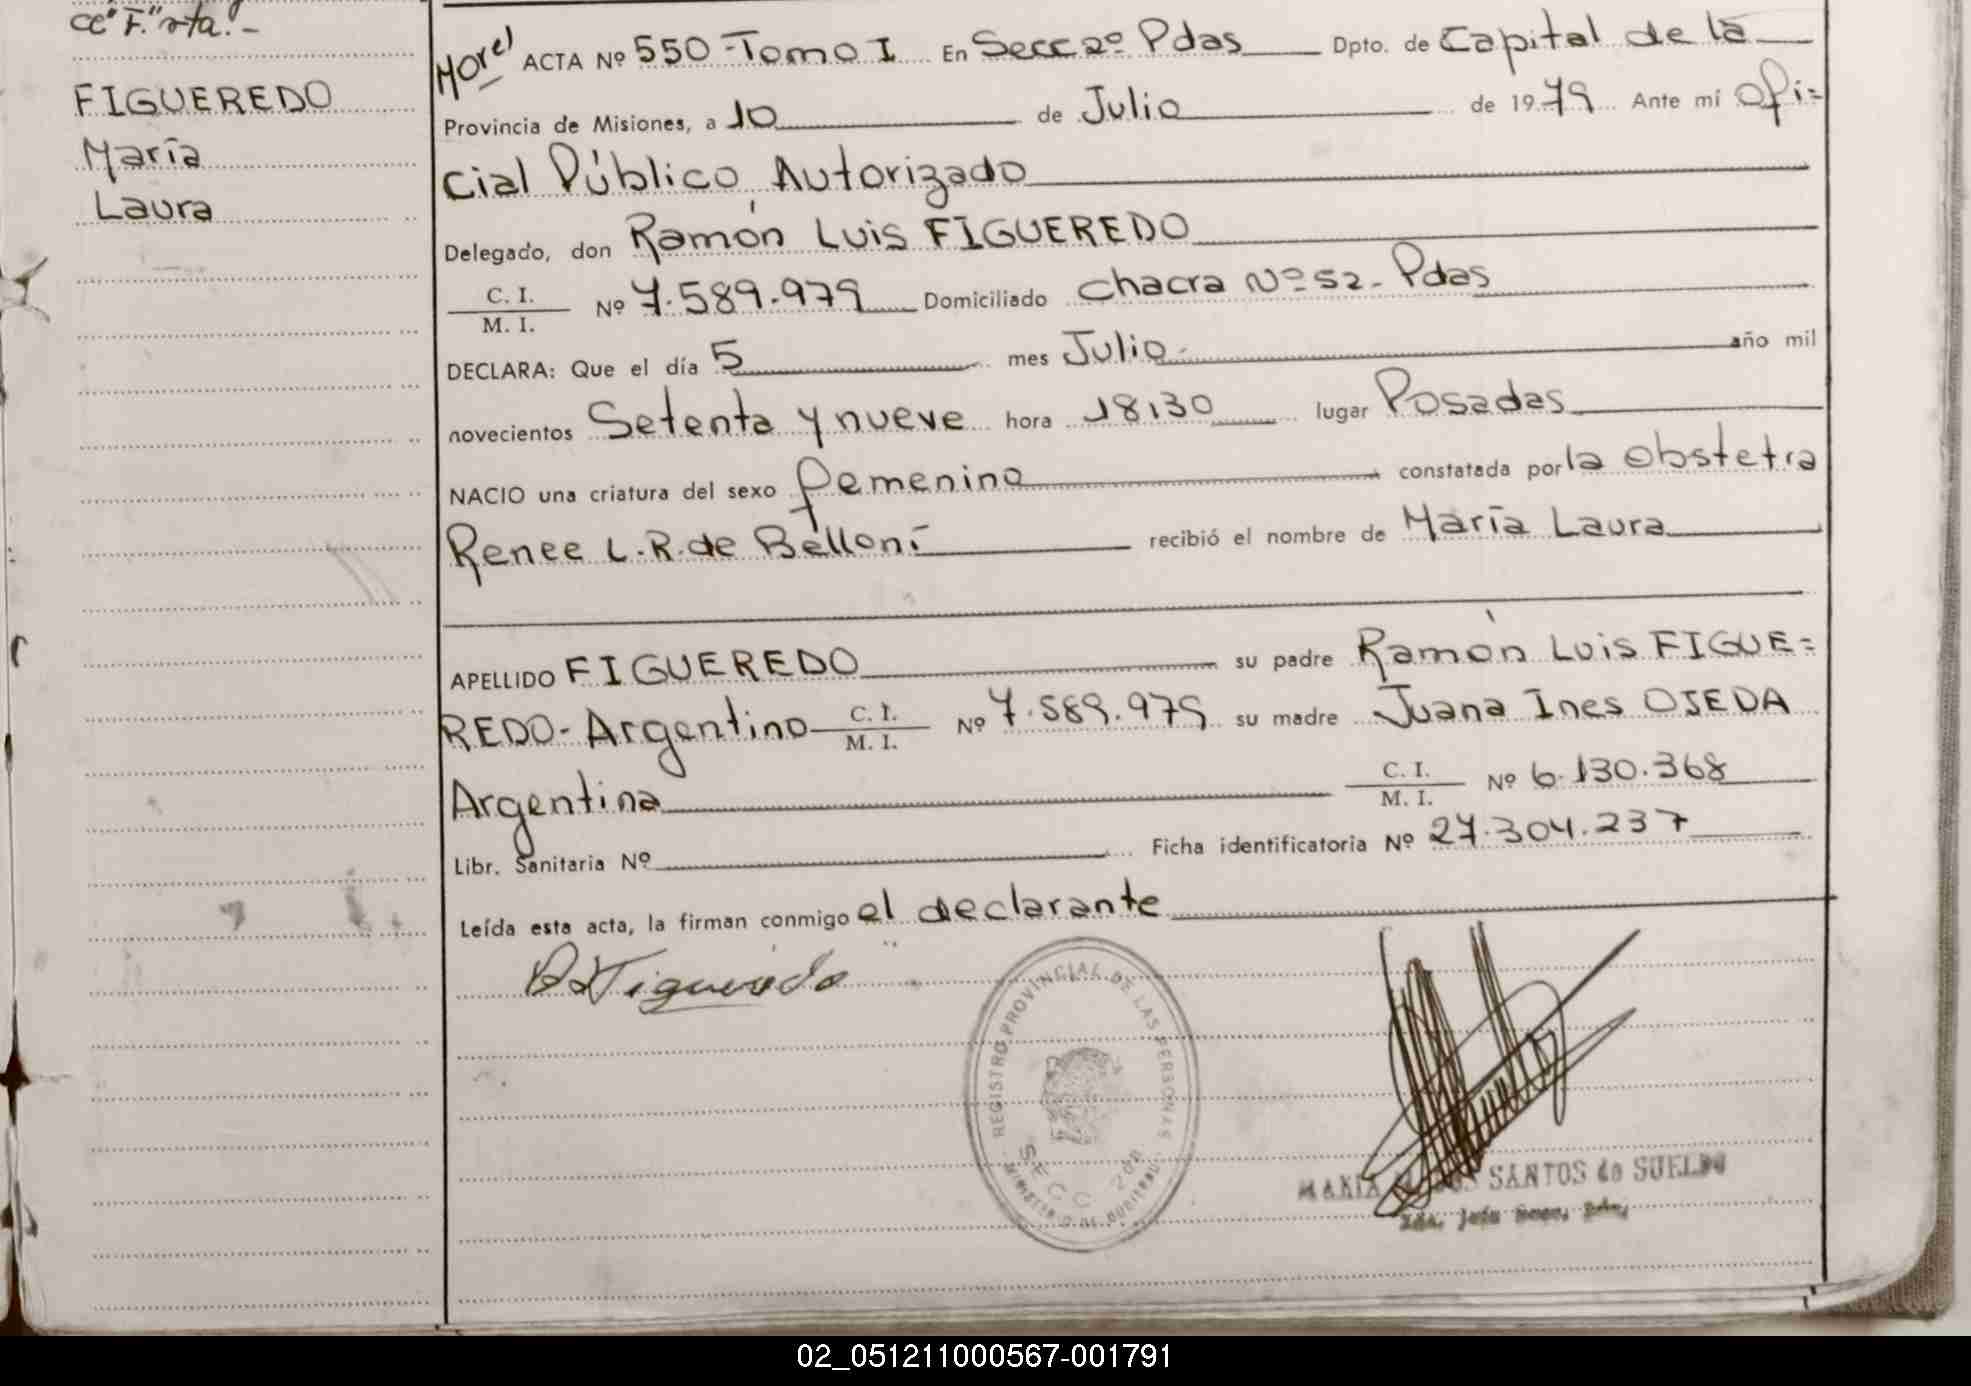 FIGUEREDO
María
Laura
ACTA Nº 550 - Tomo I En Secc 2º Pdas Dpto. de Capital de la
Provincia de Misiones, a 10 de Julio de 1979 Ante mí Ofi=
cial Público Autorizado
Delegado, don Ramón Luis FIGUEREDO
C. I.
M. I. Nº 7.589.979 Domiciliado Chacra Nº 52 - Pdas
DECLARA: Que el día 5 mes Julio año mil
novecientos Setenta y nueve hora 18,30 lugar Posadas
NACIO una criatura del sexo femenino constatada por la obstetra
Renee L.R. de Belloni recibió el nombre de María Laura
APELLIDO FIGUEREDO su padre Ramón Luis FIGUE=
REDO - Argentino C. I.
M. I. Nº 7.589.979 su madre Juana Ines OJEDA
Argentina C. I.
M. I. Nº 6.130.368
Libr. Sanitaria Nº Ficha identificatoria Nº 27.304.237
Leída esta acta, la firman conmigo el declarante
REGISTRO PROVINCIAL DE LAS PERSONAS
SECC 2da
MINISTERIO DE GOBIERNO
MARIA SANTOS de SUELDO
02_051211000567-001791